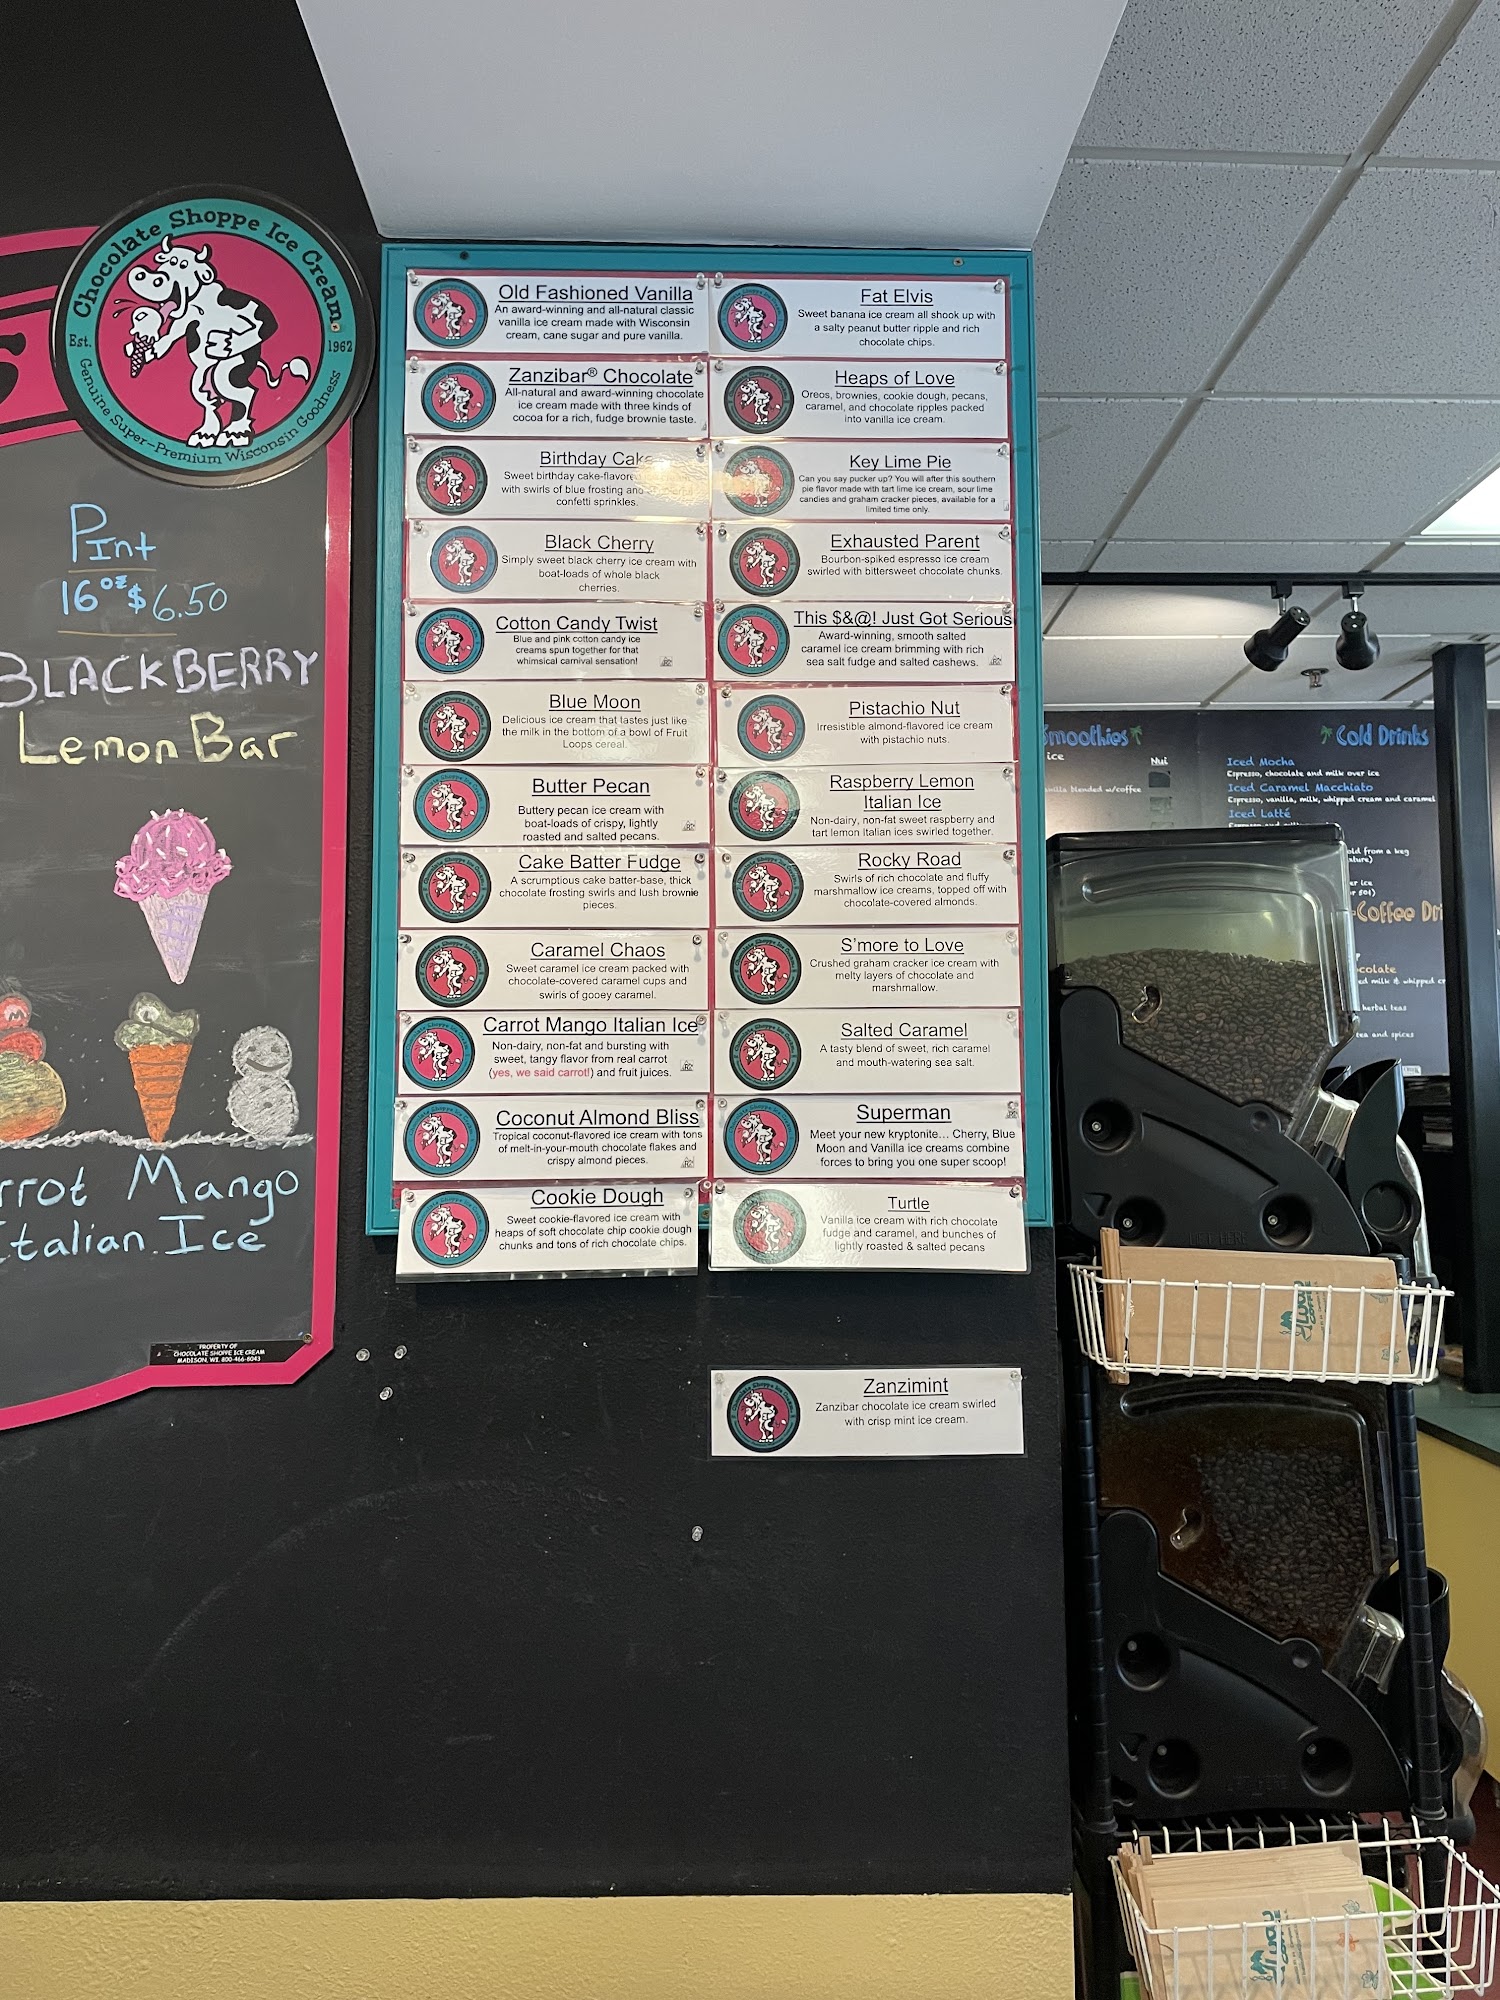 Chocolate Shoppe Ice Cream
Est. 1962
Genuine Super-Premium Wisconsin Goodness
Pint
16oz $6.50
BLACKBERRY
Lemon Bar
Mango
Italian Ice
PROPERTY OF
CHOCOLATE SHOPPE ICE CREAM
MADISON, WI. 800-466-8043
Old Fashioned Vanilla
An award-winning and all-natural classic
vanilla ice cream made with Wisconsin
cream, cane sugar and pure vanilla.
Zanzibar® Chocolate
All-natural and award-winning chocolate
ice cream made with three kinds of
cocoa for a rich, fudge brownie taste.
Birthday Cake
Sweet birthday cake-flavored
with swirls of blue frosting and
confetti sprinkles.
Black Cherry
Simply sweet black cherry ice cream with
boat-loads of whole black
cherries.
Cotton Candy Twist
Blue and pink cotton candy ice
creams spun together for that
whimsical carnival sensation!
Blue Moon
Delicious ice cream that tastes just like
the milk in the bottom of a bowl of Fruit
Loops cereal.
Butter Pecan
Buttery pecan ice cream with
boat-loads of crispy, lightly
roasted and salted pecans.
Cake Batter Fudge
A scrumptious cake batter-base, thick
chocolate frosting swirls and lush brownie
pieces.
Caramel Chaos
Sweet caramel ice cream packed with
chocolate-covered caramel cups and
swirls of gooey caramel.
Carrot Mango Italian Ice
Non-dairy, non-fat and bursting with
sweet, tangy flavor from real carrot
(yes, we said carrot!) and fruit juices.
Coconut Almond Bliss
Tropical coconut-flavored ice cream with tons
of melt-in-your-mouth chocolate flakes and
crispy almond pieces.
Cookie Dough
Sweet cookie-flavored ice cream with
heaps of soft chocolate chip cookie dough
chunks and tons of rich chocolate chips.
Fat Elvis
Sweet banana ice cream all shook up with
a salty peanut butter ripple and rich
chocolate chips.
Heaps of Love
Oreos, brownies, cookie dough, pecans,
caramel, and chocolate ripples packed
into vanilla ice cream.
Key Lime Pie
Can you say pucker up? You will after this southern
pie flavor made with tart lime ice cream, sour lime
candies and graham cracker pieces, available for a
limited time only.
Exhausted Parent
Bourbon-spiked espresso ice cream
swirled with bittersweet chocolate chunks.
This $&@! Just Got Serious
Award-winning, smooth salted
caramel ice cream brimming with rich
sea salt fudge and salted cashews.
Pistachio Nut
Irresistible almond-flavored ice cream
with pistachio nuts.
Raspberry Lemon
Italian Ice
Non-dairy, non-fat sweet raspberry and
tart lemon Italian ices swirled together.
Rocky Road
Swirls of rich chocolate and fluffy
marshmallow ice creams, topped off with
chocolate-covered almonds.
S'more to Love
Crushed graham cracker ice cream with
melty layers of chocolate and
marshmallow.
Salted Caramel
A tasty blend of sweet, rich caramel
and mouth-watering sea salt.
Superman
Meet your new kryptonite... Cherry, Blue
Moon and Vanilla ice creams combine
forces to bring you one super scoop!
Turtle
Vanilla ice cream with rich chocolate
fudge and caramel, and bunches of
lightly roasted & salted pecans
Zanzimint
Zanzibar chocolate ice cream swirled
with crisp mint ice cream.
Smoothies
ice
Nui
vanilla blended w/coffee
Cold Drinks
Iced Mocha
Espresso, chocolate and milk over ice
Iced Caramel Macchiato
Espresso, vanilla, milk, whipped cream and caramel
Iced Latté
old from a keg
er ice
-Coffee
ed milk & whipped
herbal teas
tea and spices
COFFEE
COFFEE